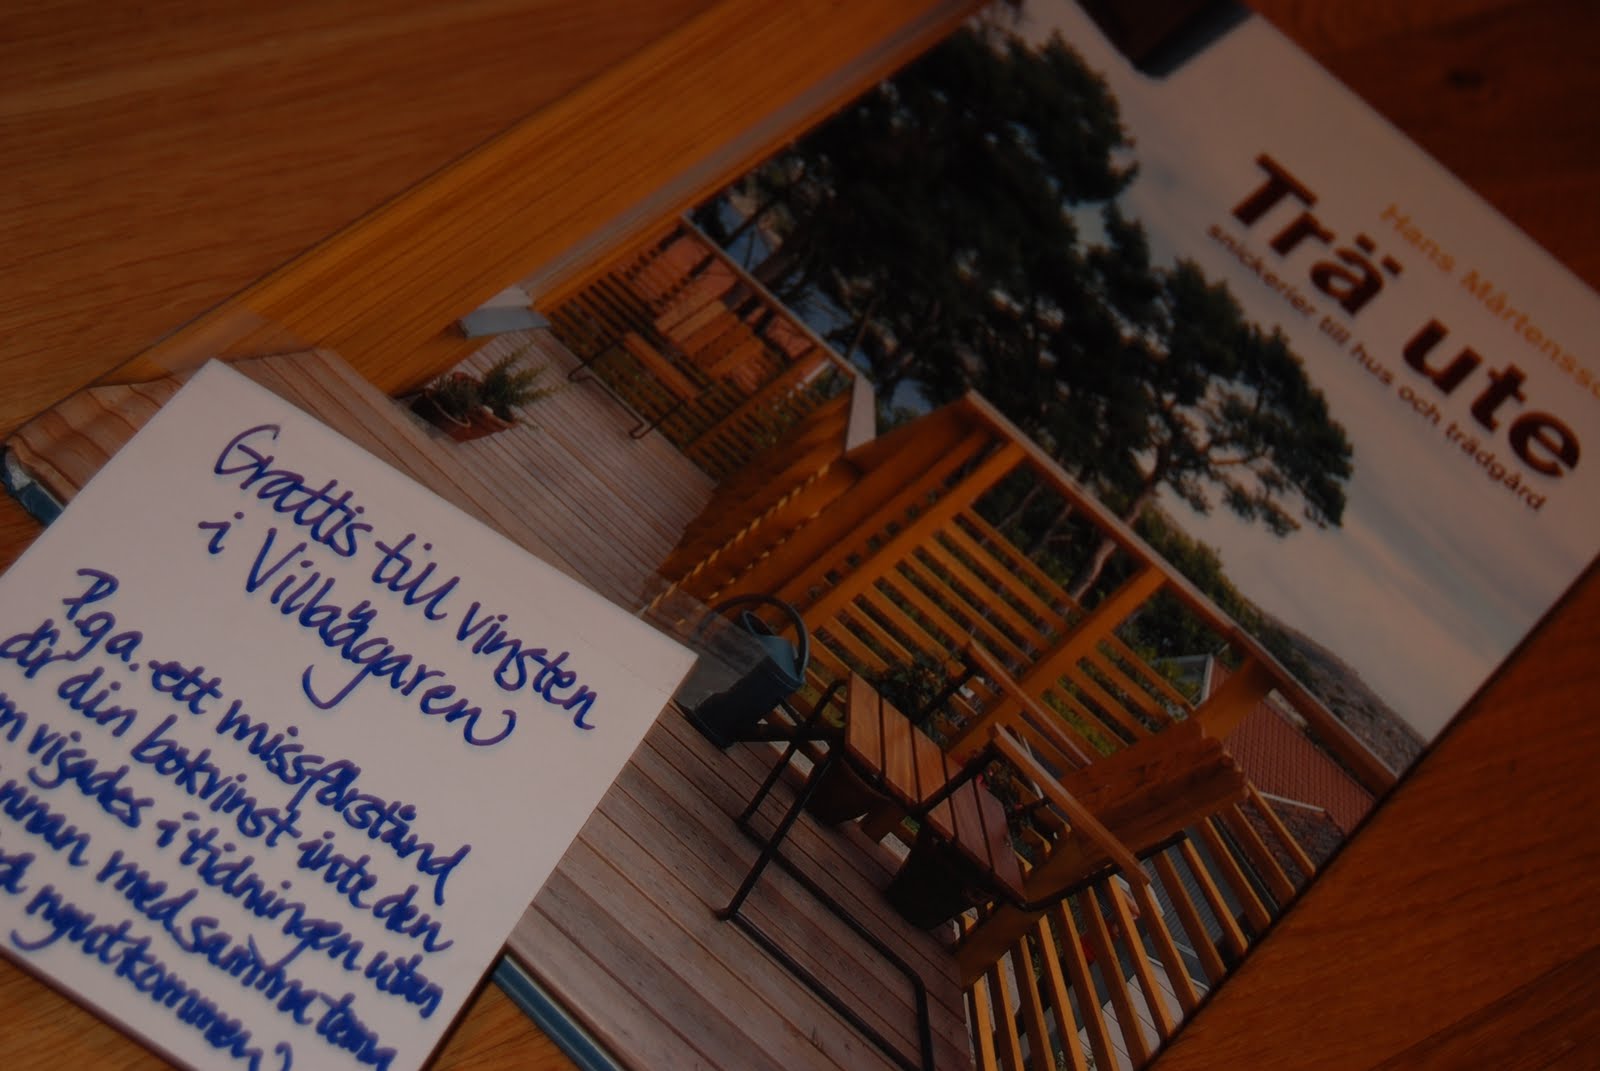 Hans Mårtensso
Trä ute
snickerier till hus och trädgård
Grattis till vinsten
i Villaägaren
P.g.a. ett missförstånd
är din bokvinst inte den
visades i tidningen utan
annan med samma tema
nyutkommen